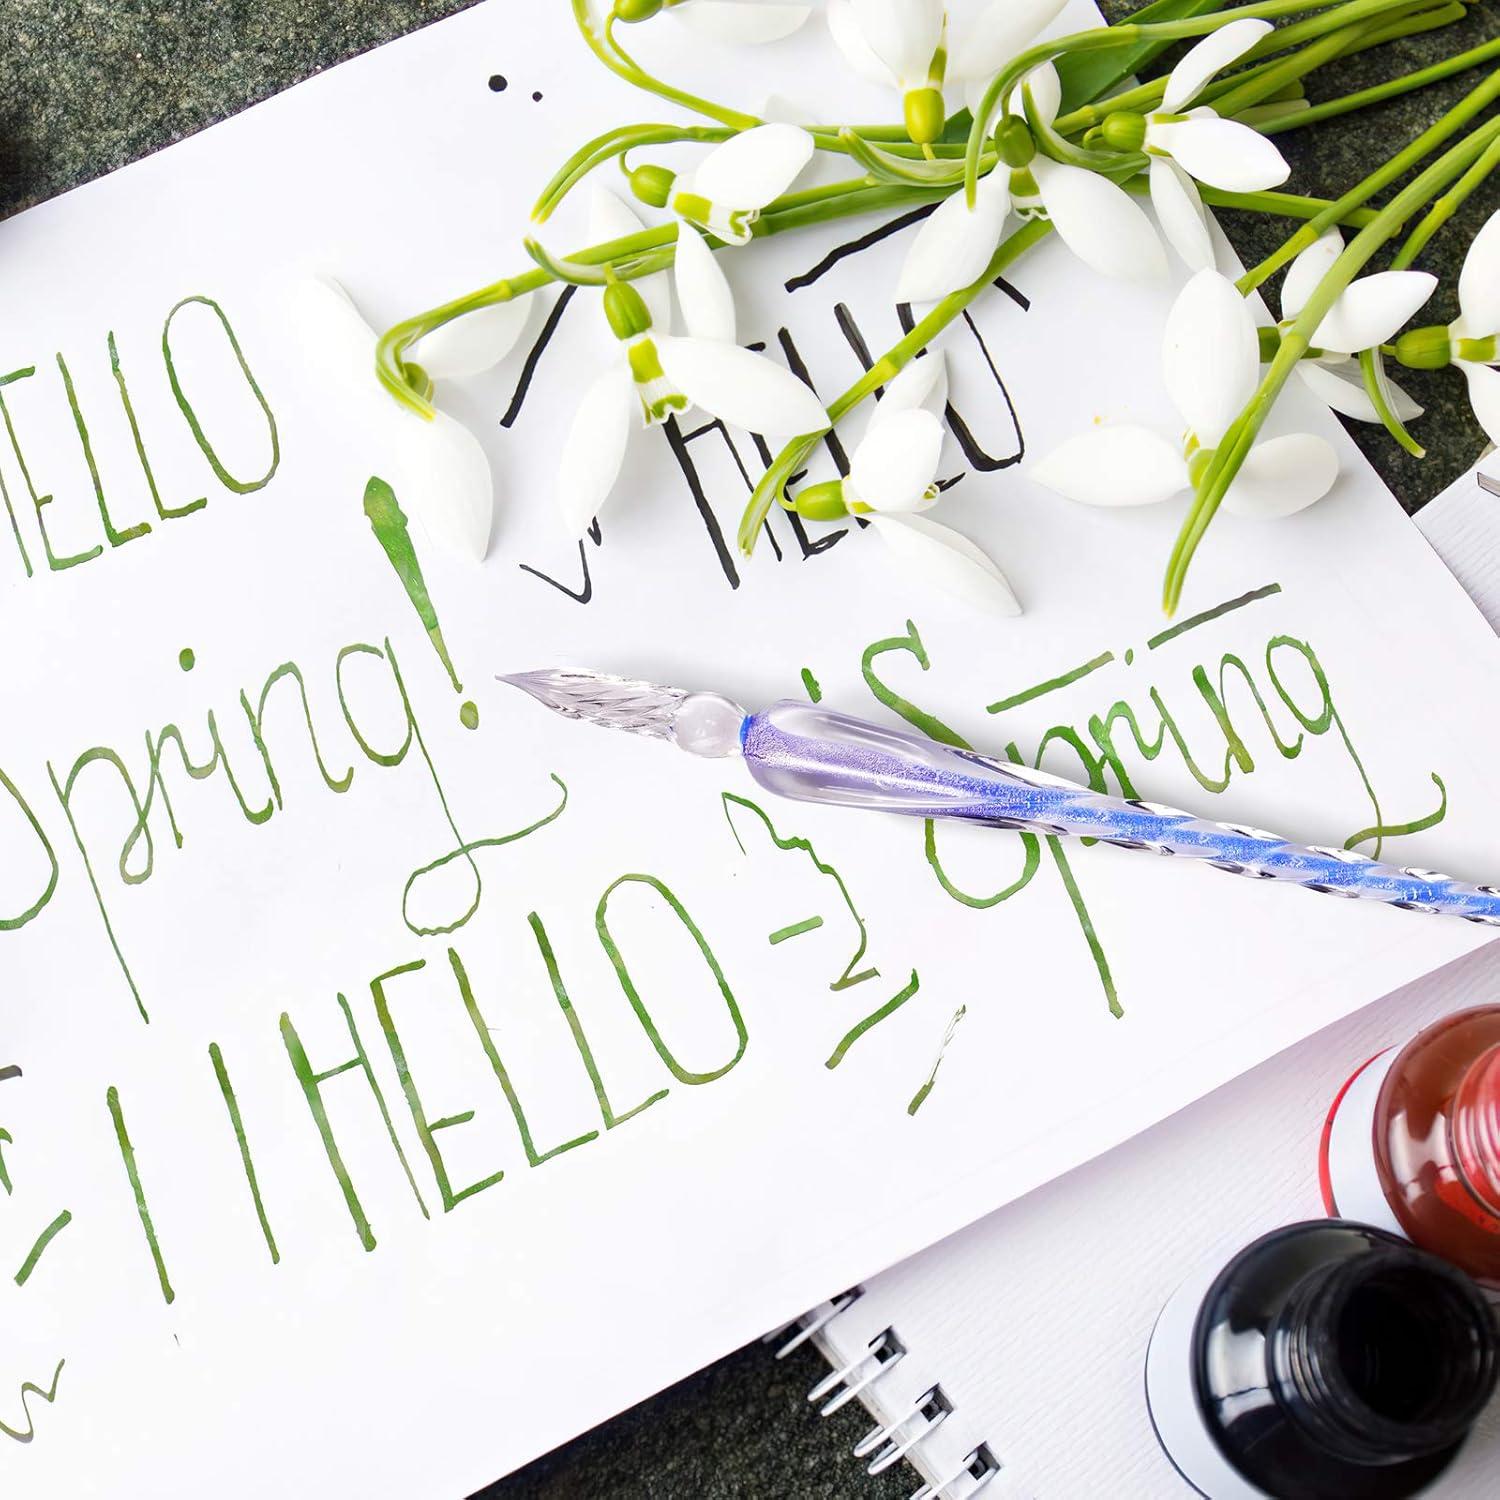 HELLO
Spring!
HELLO
Spring
HELLO